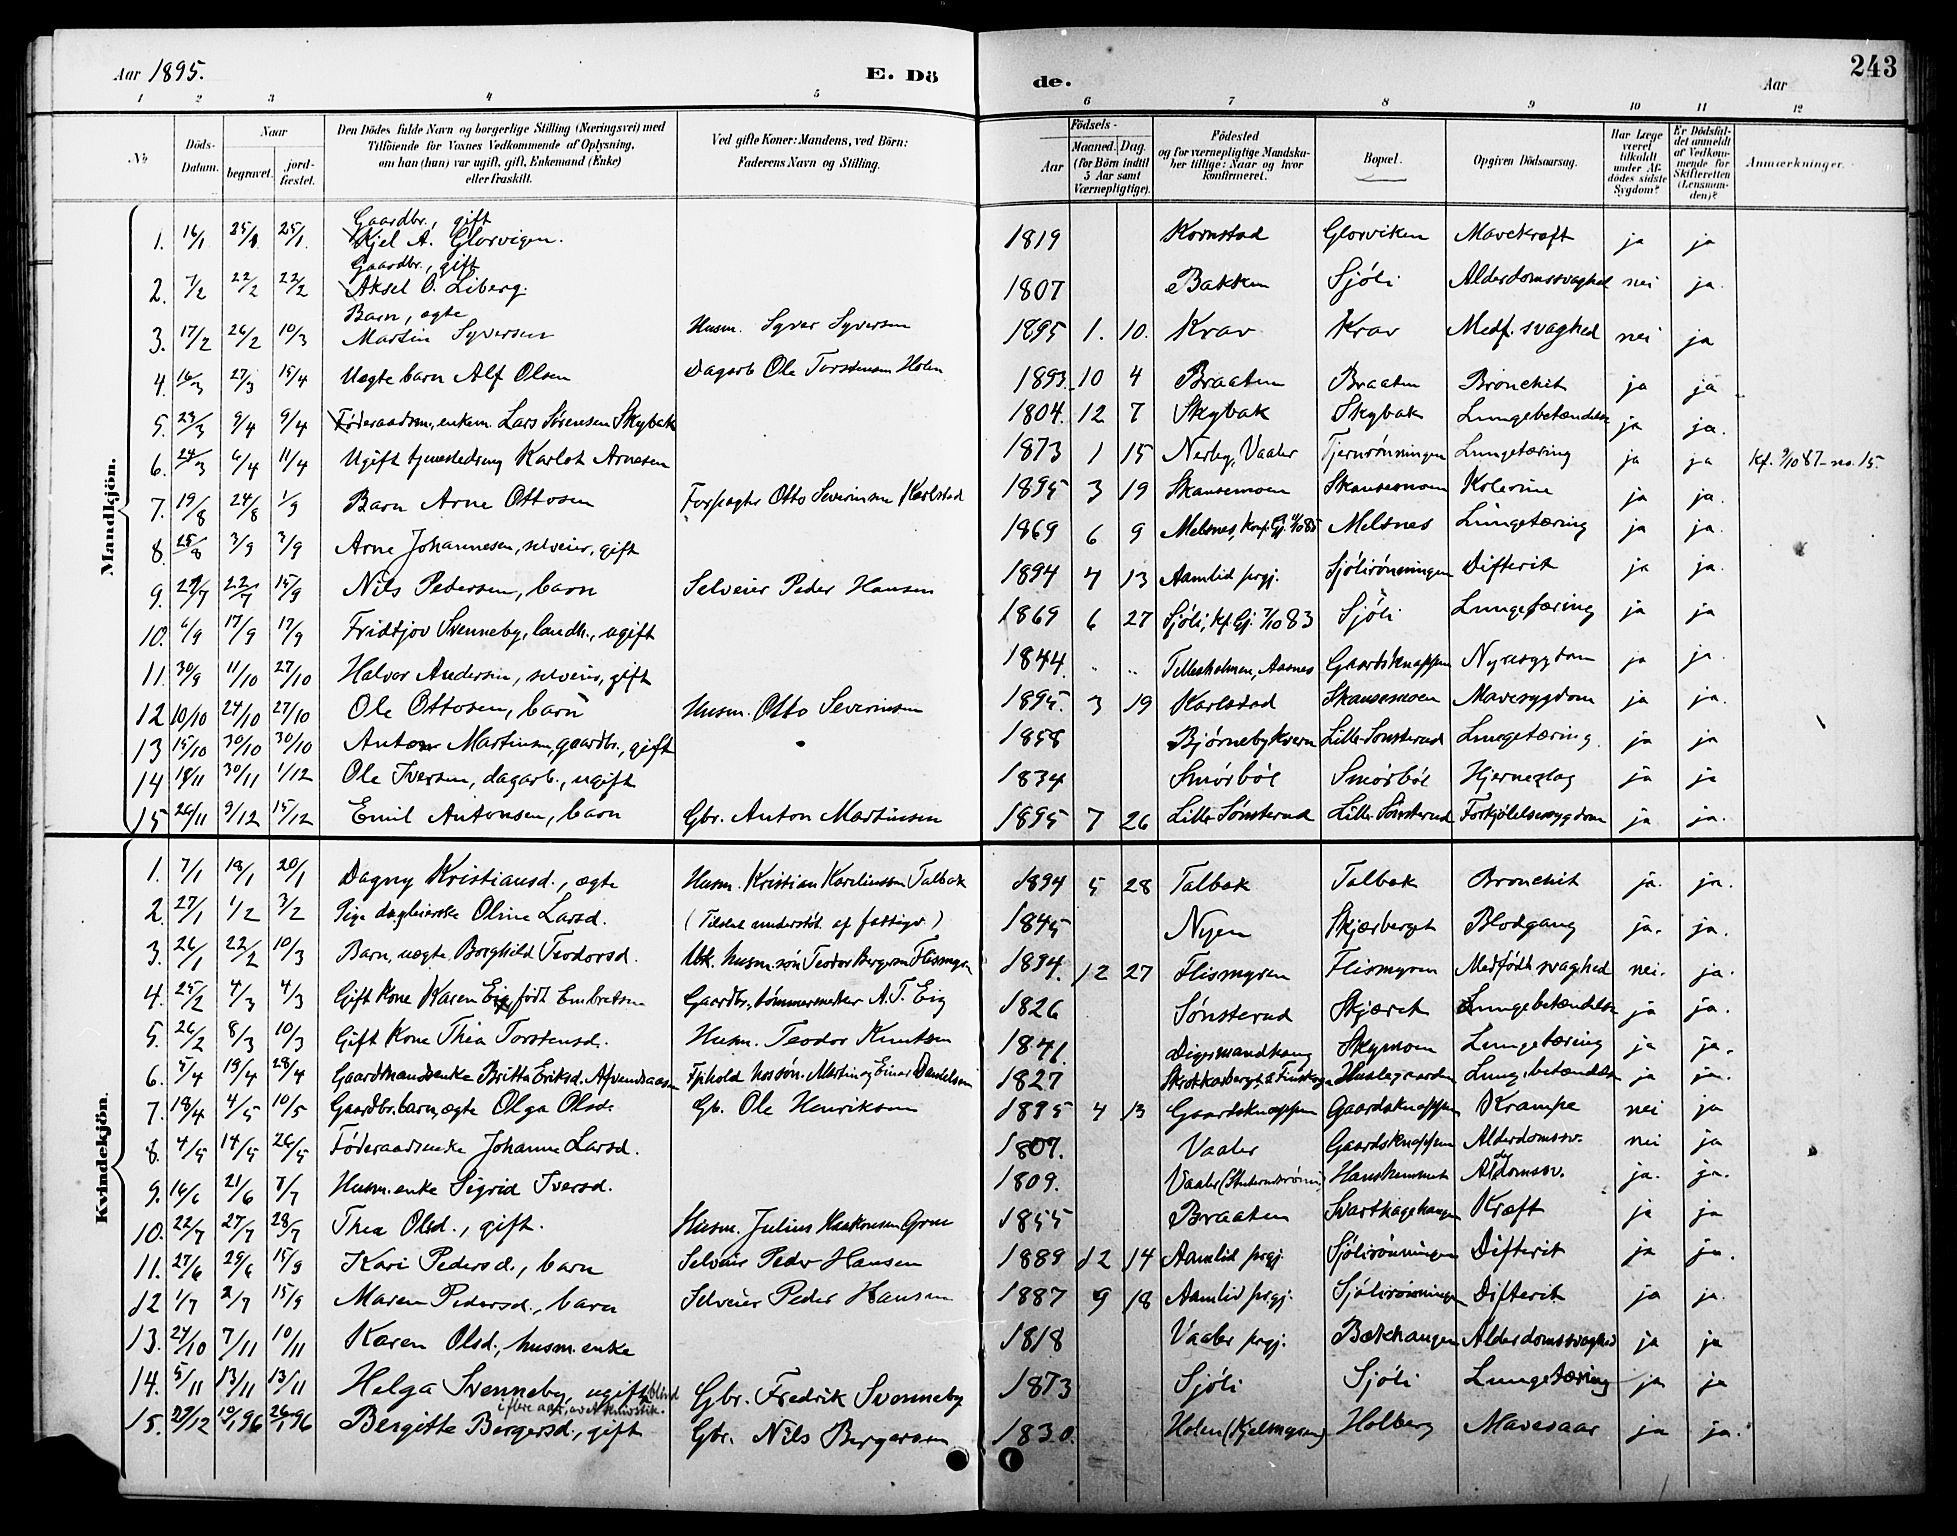 Aar 1895.
E. Dö
de.
Aar
243
1 2 3 4 5 6 7 8 9 10 11 12
No
Döds-Datum.
Naar begravet. jord-fæstet.
Den Dödes fulde Navn og borgerlige Stilling (Næringsvei) med Tilföiende for Voxnes Vedkommende af Oplysning, om han (hun) var ugift, gift, Enkemand (Enke) eller fraskilt.
Ved gifte Koner: Mandens, ved Börn: Faderens Navn og Stilling.
Födsels-
Aar
Maaned. Dag.
(for Börn indtil 5 Aar samt Værnepligtige).
Födested og for værnepligtige Mandska-ber tillige: Naar og hvor konfirmeret.
Bopæl.
Opgiven Dödsaarsag.
Har Læge været tilkaldt under Af-dödes sidste Sygdom?
Er Dödsfal-det anmeldt af Vedkom-mende for Skifteretten (Lensman-den)?
Anmærkninger.
Mandkjön.
1. 16/1 25/1 25/1 Gaardbr., gift Kjel A. Glorvigen. 1819 Kornstad Glorviken Mavekræft ja ja
2. 7/2 22/2 22/2 Gaardbr., gift Aksel O. Liberg. 1807 Bakken Sjöli Alderdomssvaghed nei ja.
3. 17/2 26/2 10/3 Barn, ægte Martin Syversen Husm. Syver Syversen 1895 1. 10. Krav Krav Medf. svaghed nei ja
4. 16/3 27/3 15/4 Uægte barn Alf Olsen Dagarb Ole Torstensen Holen 1893. 10 4 Braaten Braaten Bronchit ja ja
5. 23/3 9/4 9/4 Föderaadsm., enkem. Lars Sörensen Skybak 1804. 12 7 Skybak Skybak Lungebetændelse ja ja.
6. 24/3 6/4 11/4 Ugift tjenestedreng Karlot Arnesen 1873 1 15 Nerby, Vaaler Tjernrönningen Lungetæring ja ja Kf. 9/10 87 no. 15.
7. 19/8 24/8 1/9 Barn Arne Ottosen Forpagter Otto Severinsen Karlstad 1895 3 19 Skansemoen Skansemoen Kolerine ja ja.
8. 25/8 3/9 3/9 Arne Johannesen, selveier, gift 1869 6 9 Melsnes, Konf. Gj. 11/10 85 Melsnes Lungetæring ja ja.
9. 22/7 15/9 Nils Pedersen, barn Selveier Peder Hansen 1894 4 13 Aamlid prgj. Sjölirönningen Difterit ja ja.
10. 6/9 17/9 17/9 Fridtjov Svenneby, landh., ugift 1869 6 27 Sjöli, Kf. Gj. 7/10 83 Sjöli Lungetæring ja ja
11. 30/9 11/10 27/10 Halvor Andersen, selveier, gift 1844. " " Tellesholmen, Aasnes Gaardsknappen Nyresygdom ja ja.
12 10/10 24/10 27/10 Ole Ottosen, barn Husm. Otto Severinsen 1895. 3 19 Karlstad Skansemoen Mavesygdom ja ja.
13 15/10 30/10 30/10 Anton Martinsen, gaardbr., gift 1858 Björnebykvern Lille-Sönsterud Lungetæring. ja ja
14 18/11 30/11 1/12 Ole Iversen, dagarb., ugift 1834 Smörböl Smörböl Hjerneslag ja ja
15 26/11 9/12 15/12 Emil Antonsen, barn Gbr. Anton Martinsen 1895 7 26 Lille Sönsterud Lille Sönsterud Forkjölelsessygdom ja ja.
Kvindekjön.
1. 7/1 18/1 20/1 Dagny Kristiansd., ægte Husm. Kristian Karelinssen Talbak 1894 5 28 Talbak Talbak Bronchit ja. ja.
2. 27/1 1/2 3/2 Pige dagleierske Oline Larsd. (Tildels understöt af fattigv.) 1845 Nyen Skjærberget Blodgang ja. ja.
3. 26/1 22/2 10/3 Barn, uægte, Borghild Teodorsd. Ubk. husm.sön Teodor Bergersen Flismyren 1894. 12 27 Flismyren Flismyren Medfödt svaghed nei. ja.
4. 25/2 4/3 4/3 Gift Kone Karen Eig född Embretsen Gaardbr., tömmermerker A. T. Eig 1826 Sönsterud Skjæret Lungebetændelse ja ja.
5. 26/2 8/3 10/3 Gift Kone Thea Torstensd. Husm. Teodor Knutsen 1841. Digermandhaug Skymoen Lungetæring ja ja.
6. 5/4 19/4 28/4 Gaardmandsenke Britta Eriksd. Afvundsaasen Ophold hos sön. Martin og Einar Danielsen 1827 Lungebetændelse ja ja.
7. 18/4 4/5 10/5 Gaardbr.barn, ægte Olga Olsd. Gb. Ole Henriksen 1895 4 13 Gaardsknappen Gaardsknappen Krampe nei ja
8. 4/5 14/5 26/5 Föderaadsenke Johanne Larsd. 1807. Vaaler Gaardsknappen Alderdomssv. nei ja
9. 16/6 21/6 7/7 Husm.enke Sigrid Iversd. 1809. Vaaler Alderdomssv. ja. ja.
10. 22/7 27/7 28/7 Thea Olsd., gift. Husm. Julius Haakonsen Grue 1855 Braaten Svarthagehaugen Kræft ja ja
11. 27/6 29/6 15/9 Kari Pedersd., barn Selveier Peder Hansen 1889 12 14 Aamlid prgj. Sjölirönningen Difterit ja ja.
12 1/7 2/7 15/9 Maren Pedersd., barn Selveier Peder Hansen 1887 9 18 Aamlid prgj. Sjölirönningen Difterit ja ja.
13. 24/10 7/11 10/11 Karen Olsd., husm.enke 1818 Vaaler prgj. Bækhaugen Alderdomssvaghed ja ja
14. 5/11 13/11 13/11 Helga Svenneby, ugift, blind Gbr. Fredrik Svenneby 1873 Sjöli Sjöli Lungetæring ja ja
15. 29/12 10/1 96 26/1 96 Bergitte Bergersd., gift Gbr. Nils Bergersen 1830. Holen (Kjelmyren) Holberg Mavesaar ja ja.